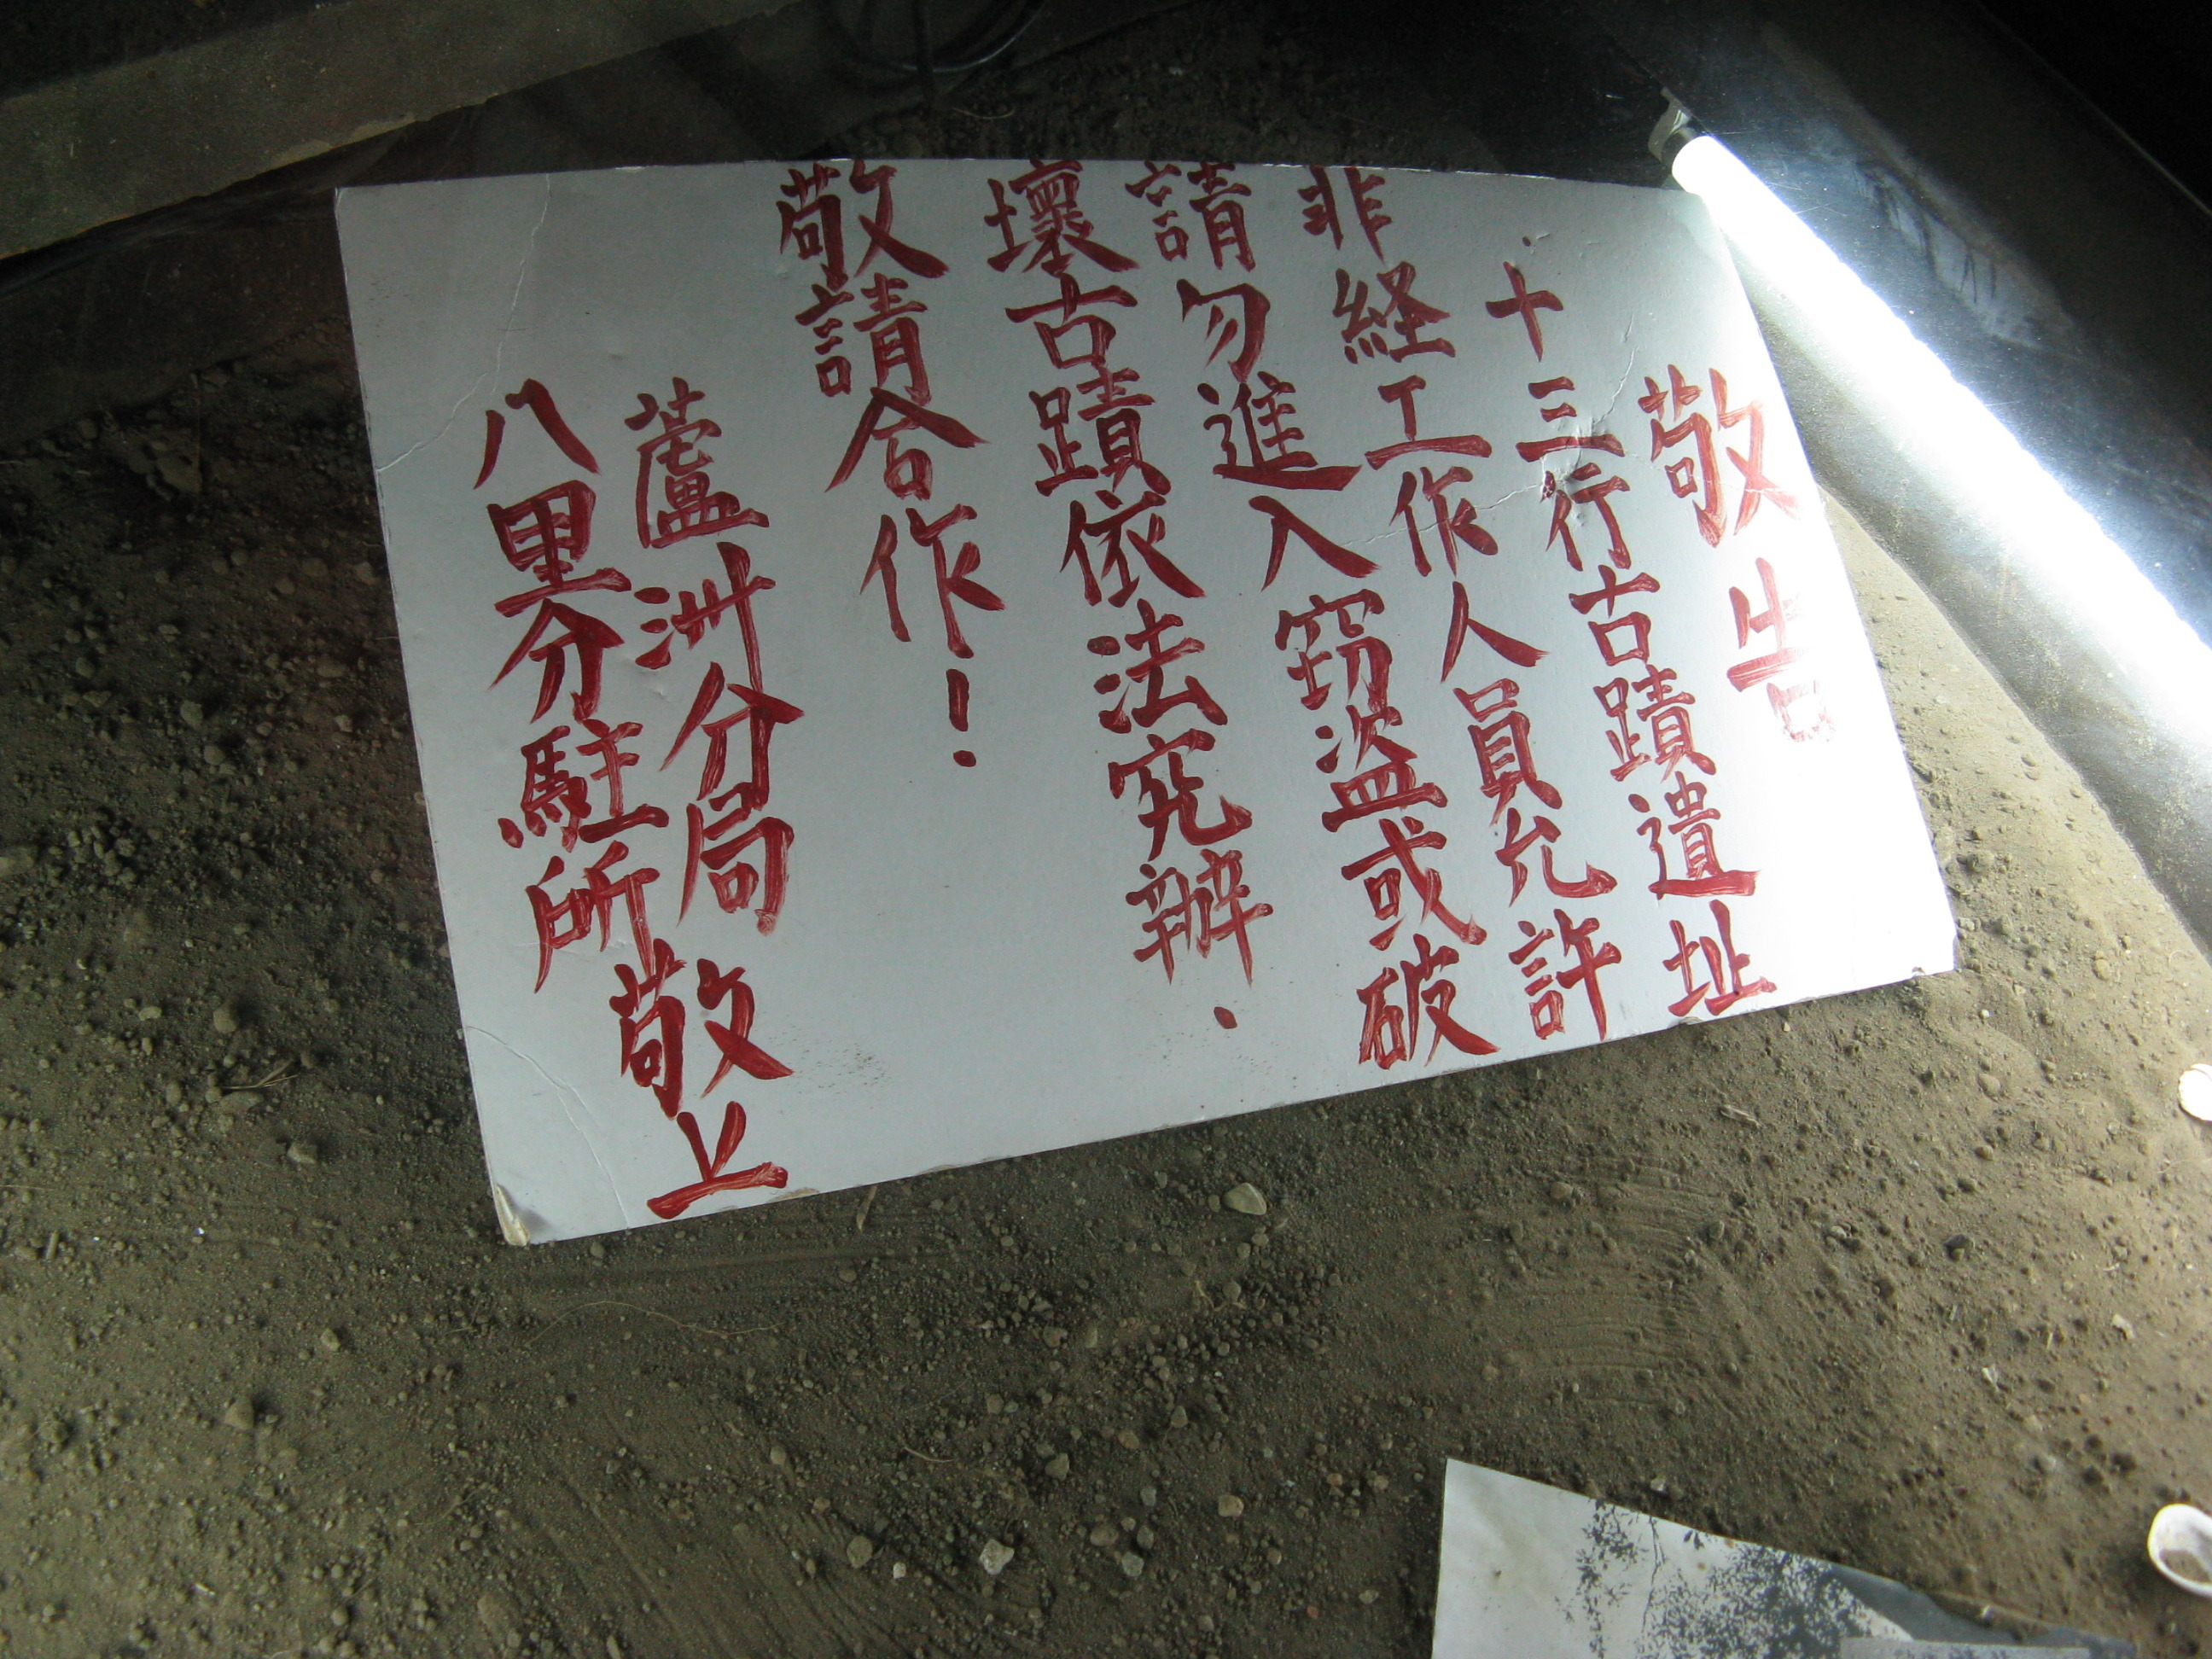 敬告
十三行古蹟遺址
非経工作人員允許
請勿進入窃盗或破
壞古蹟依法究辦.
敬請合作!
蘆洲分局
八里分駐所
敬上